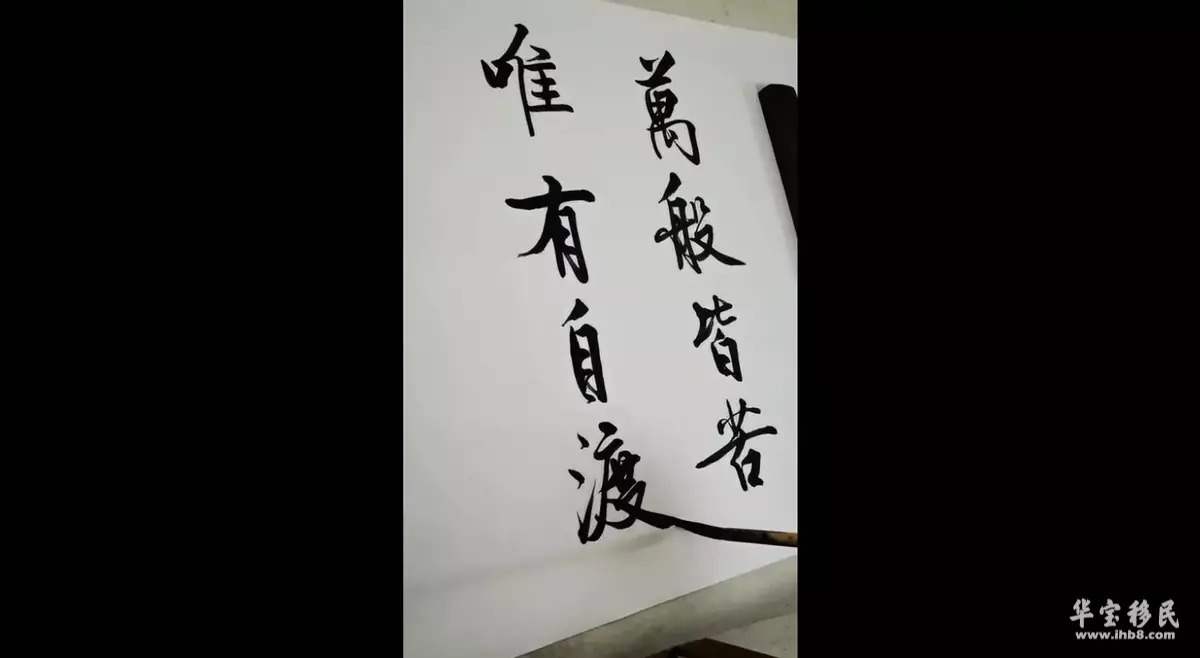 萬般皆苦
唯有自渡
华宝移民
www.ihb8.com